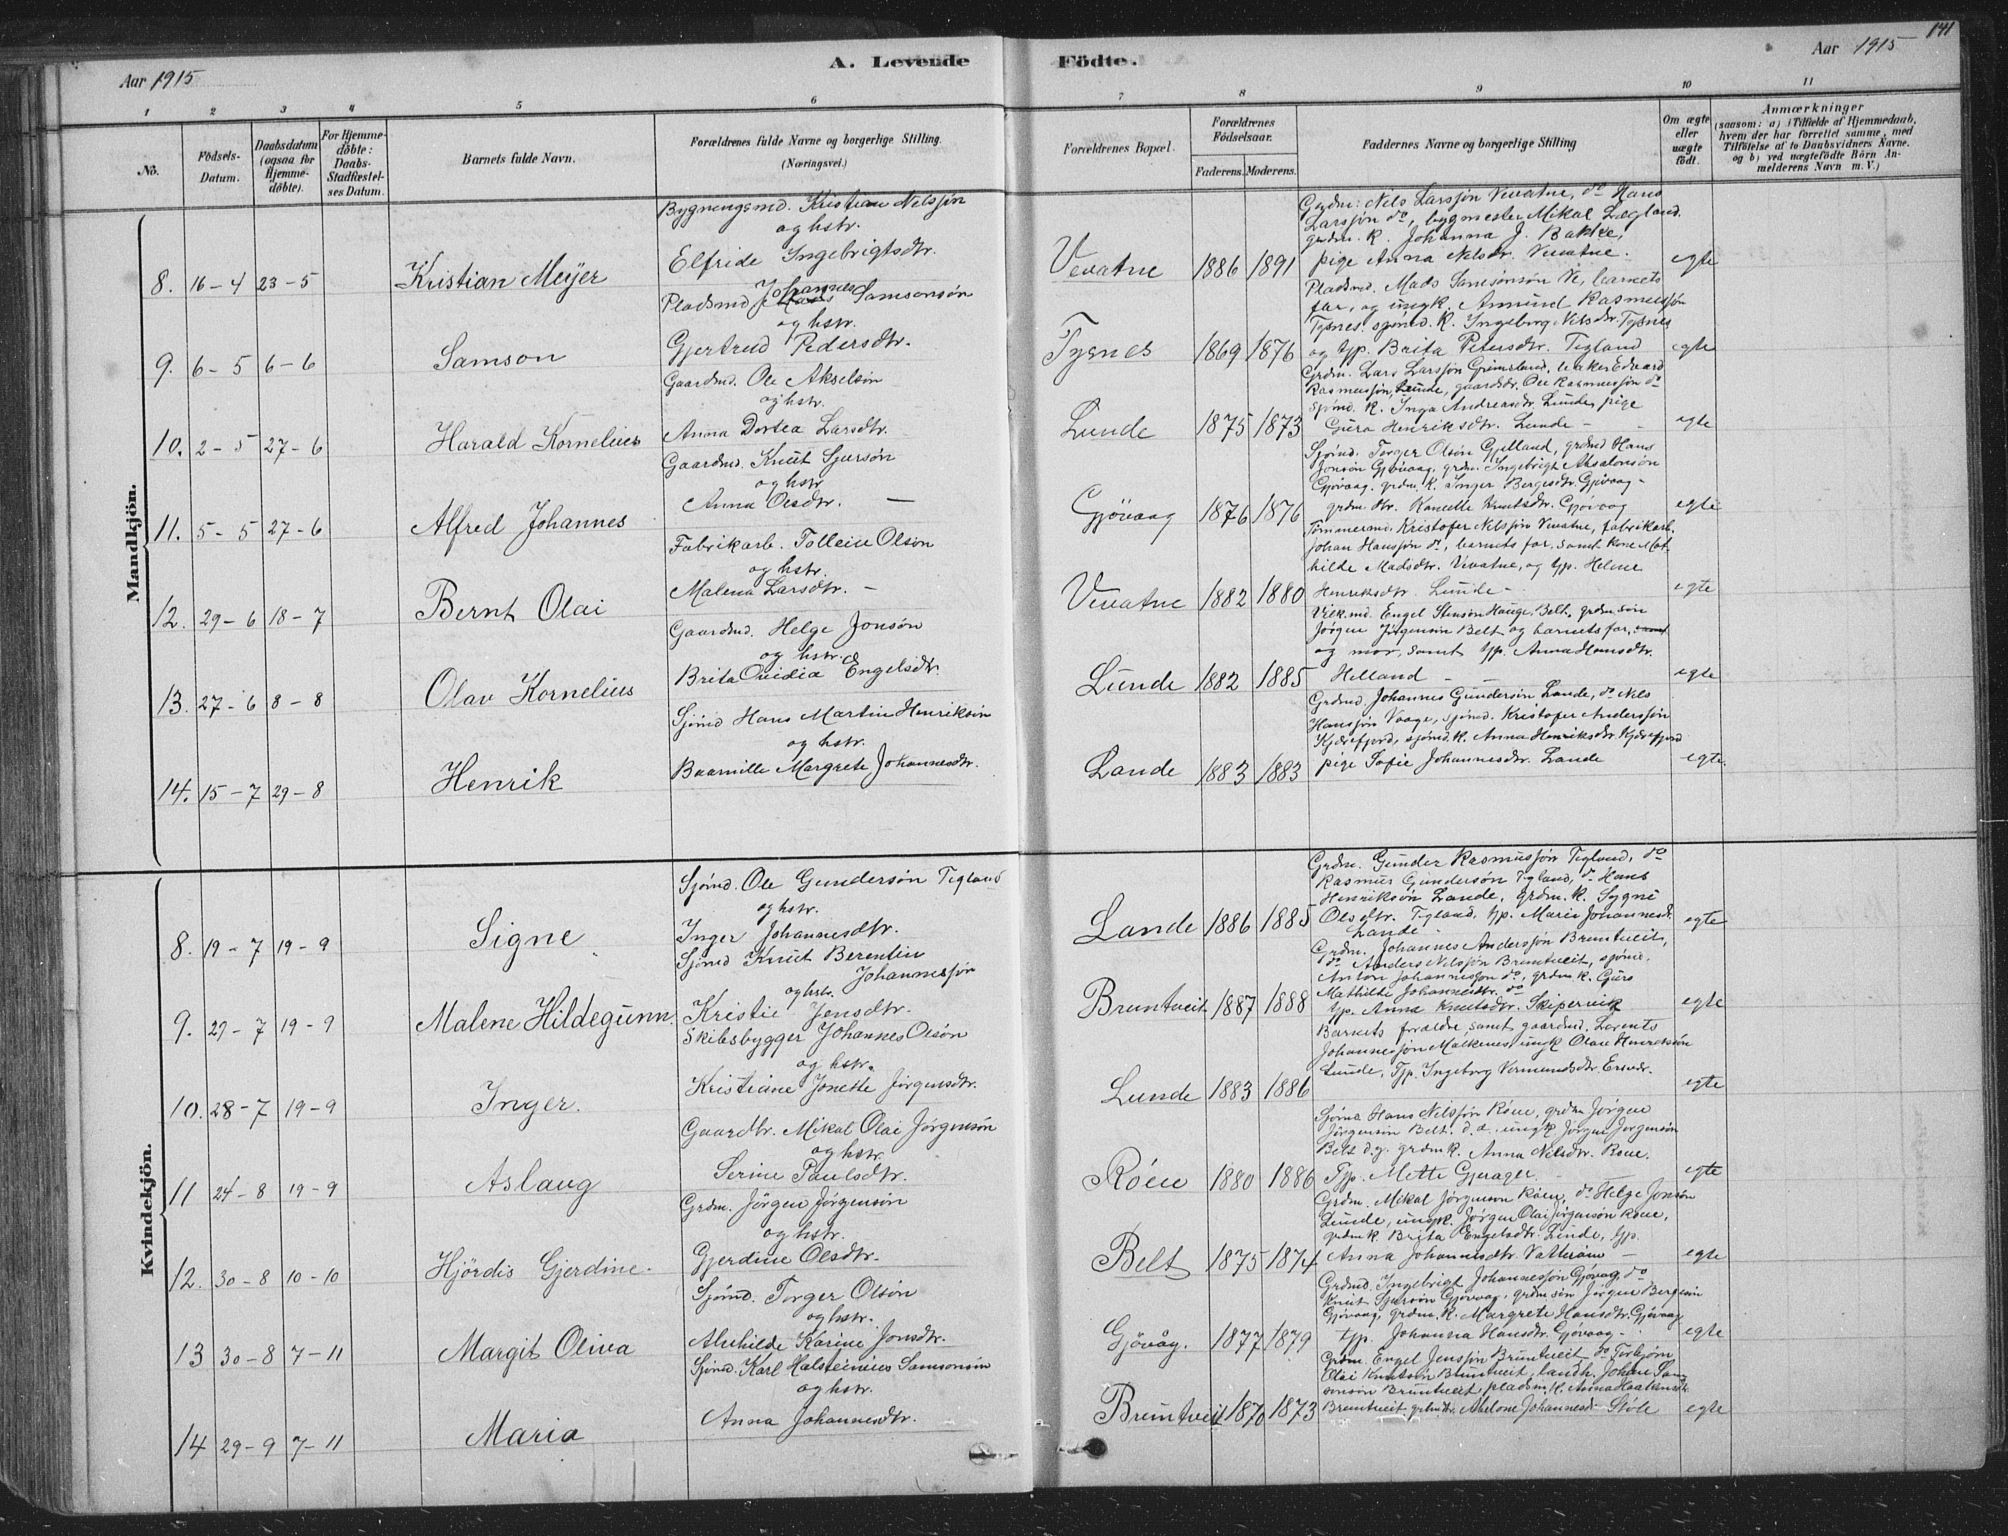 Aar 1915
A. Levende
Födte.
Aar 1915
141
1 2 3 4 5 6 7 8 9 10 11
No.
Födsels-Datum.
Daabsdatum (ogsaa for Hjemme-döbte).
For Hjemme-döbte: Daabs-Stadfæstel-ses Datum.
Barnets fulde Navn.
Forældrenes fulde Navne og borgerlige Stilling.
(Næringsvei.)
Forældrenes Bopæl.
Forældrenes Födselsaar.
Faderens. Moderens.
Faddernes Navne og borgerlige Stilling
Om ægte eller uægte födt.
Anmærkninger
(saasom: a) i Tilfælde af Hjemmedaab,
hvem der har forrettet samme, med
Tilföielse af to Daabsvidners Navne.
og b) ved uægtefödte Börn An-
melderens Navn m. V.)
Mandkjön.
8. 16-4 23-5 Kristian Meyer
Bygningsmd. Kristian Nilssjön
og hstr.
Elfride Ingebrigtsdtr.
Vevatne 1886 1891
Grdm. Nils Larssjön Vevatne, do Hans
Larssjön do, bygmester Mikal Lægland.
grdm. k. Johanna J. Bakke,
pige Anna Nilsdtr. Vevatne.
egte
9. 6-5 6-6 Samson
Pladsmd Johannes Samsonsön
og hstr.
Gjertrud Pedersdtr.
Tysnes 1869 1876
Pladsmd. Mads Samsonsön Ve, barnets
far, og ungk. Amund Rasmussjön
Tysnes, sjömd. K. Ingeborg Nilsdtr. Tysnes
og tjp. Brita Petersdtr. Tegland
egte
10. 2-5 27-6 Harald Kornelius
Gaardmd. Ole Akselsön
og hstr.
Anna Dortea Larsdtr.
Lunde 1875 1873
Grdm. Lars Larssjön Grimsland, Edvard
Rasmussjön, Lunde, gaardbr. Ole Rasmussjön do
sjömd. k. Inga Andreasdtr. Lunde, pige
Guro Henriksdtr. Lunde -
egte
11. 5-5 27-6 Alfred Johannes
Gaardmd. Knut Sjursön
og hstr
Anna Olsdtr. -
Gjövaag 1876 1876
Sjömd. Torger Olsön Gjelland, grdmd Hans
Jonsön Gjövaag, grdm. Ingebrigt Absalonsön
Gjövaag. grdm. k. Inger Bergesdtr. Gjövaag -
grdm. dtr. Knutsdtr. Gjövaag
egte
12. 29-6 18-7 Bernt Olai
Fabrikarb. Tolleiv Olsön
og hstr.
Malena Larsdtr. -
Vevatne 1882 1880
Tömmermd. Kristofer Nilssjön Vevatne, fabrikarb.
Johan Hanssjön do, barnets far, samt kone Mat-
hilde Madsdtr. Vevatne, og tjp. Helene
Henriksdtr. Lunde -
egte
13. 27-6 8-8 Olav Kornelius
Gaardmd. Helge Jonsön
og hstr.
Brita Ovidia Engelsdtr.
Lunde 1882 1885
Engel Stensön Hauge, Belt, grdm. sön
Jörgen Jörgensön Belt og barnets far,
og mor, samt tjp. Anna Hansdtr.
Helland -
egte
14. 15-7 29-8 Henrik
Sjömd Hans Martin Henriksön
og hstr.
Margrete Johannesdtr.
Lande 1883 1883
Grdmd. Johannes Gundersön Lande, do Nils
Hanssjön Vaage, sjömd. Kristofer Anderssjön
Kjærefjord, sjömd. k. Anna Henriksdtr. Kjærefjord
pige Sofie Johannesdtr. Lande
egte.
Kvindekjön.
8. 19-7 19-9 Signe
Sjömd. Ole Gundersön Tegland
og hstr.
Inger Johannesdtr.
Lande 1886 1885
Grdm. Gunder Rasmussjön Tegland, do
Rasmus Gundersön Tegland, do Hans
Henriksön Lande, grdm. k. Sygni
Olsdtr. Tegland, tjp. Marie Johannesdt.
Lande -
egte
9. 29-7 19-9 Malene Hildegunn.
Sjömd Knut Berentin
Johannessjön
og hstr.
Kristie Jensdtr.
Bruntveit 1887 1888
Grdm. Johannes Anderssjön Bruntveit,
do Anders Nilssjön Bruntveit, sjömd.
Anton Johannessjön do, grdm. k. Guro
Mathilde Johannesdtr. do
tjp. Anna Knutsdtr. Skipervik
egte
10. 28-7 19-9 Inger.
Skibsbygger Johannes Olsön
og hstr.
Kristiane Jonette Jörgensdtr.
Lunde 1883 1886
Barnets forældre, samt gaardmd. Lorents
Johannessjön Malkenes, ungk Olav Henriksön
Lunde, Tjp. Ingeborg Vermundsdtr.
egte
11 24-8 19-9 Aslaug
Gaardbr. Mikal Olai Jörgensön
og hstr.
Serine Paulsdtr.
Röen 1880 1886
Sjömd Hans Nilssjön Röen, grdm Jörgen
Jörgensön Belt. d.æ. ungk Jörgen Jörgensön
Belt d.y. grdm k. Anna Nilsdtr. Röen.
Tjp. Mette Gjerager. -
egte
12. 30-8 10-10 Hjördis Gjerdine.
Grdm. Jörgen Jörgensön
og hstr.
Gjerdine Olsdtr.
Belt 1875 1874
Grdm. Mikal Jörgensön Röen, do Helge Jonsön
Lunde, ungk. Jörgen Olai Jörgensön Röen,
grdm k. Brita Engelsdtr. Lunde, tjp.
Anna Johannesdtr. -
egte
13 30-8 7-11 Margit Oliva
Sjömd. Torger Olsön
og hstr.
Alvhilde Karine Jonsdtr.
Gjövåg. 1877 1879
Grdmd. Ingebrigt Johannessjön Gjövag, do
Knut Sjursön Gjövaag, grdm sön Jörgen Bergesön
Gjövaag, grdm. k. Margrete Hansdtr. Gjövaag
tjp. Johanna Hansdtr. Gjövaag -
egte
14 29-9 7-11 Maria
Sjömd. Karl Halsteinius Samsonsön
og hstr.
Anna Johannesdtr.
Bruntveit 1870 1873
Grdm. Engel Jenssjön Bruntveit do Torbjörn
Olai Knutsön Bruntveit, landh. Johan Sam-
sonsön Bruntveit, pladsm. k. Anna
Bruntveit, Abelone Johannesd. Stöle
egte